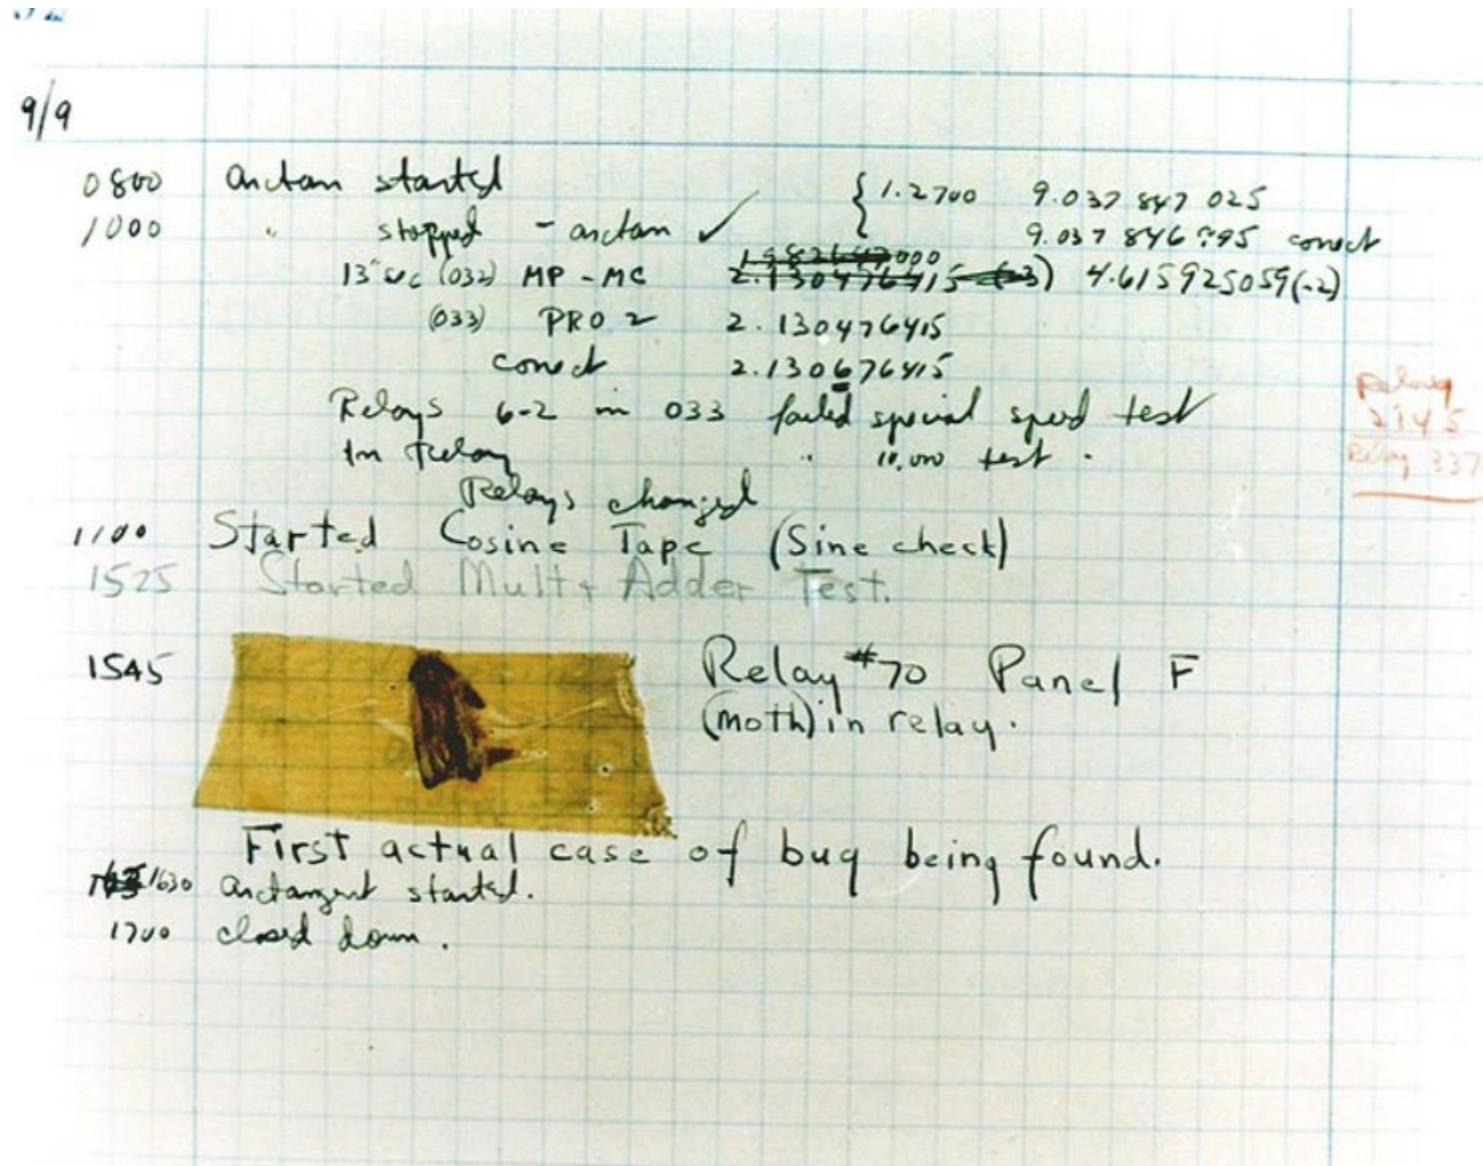 9/9
0800 arctan started { 1.2700 9.037 847 025
1000 " stopped - arctan ✓ 9.037 846 995 correct
13" sec (032) MP - MC 1.982647000 2.130476415 (-3) 4.615925059(-2)
(033) PRO 2 2.130476415
correct 2.130676415
Relays 6-2 in 033 failed special speed test
In Relay " 10,000 test .
Relays changed
Relay
2145
Relay 337
1100 Started Cosine Tape (Sine check)
1525 Started Mult + Adder Test.
1545 Relay #70 Panel F
(moth) in relay.
First actual case of bug being found.
1630 arctangent started.
1700 closed down.